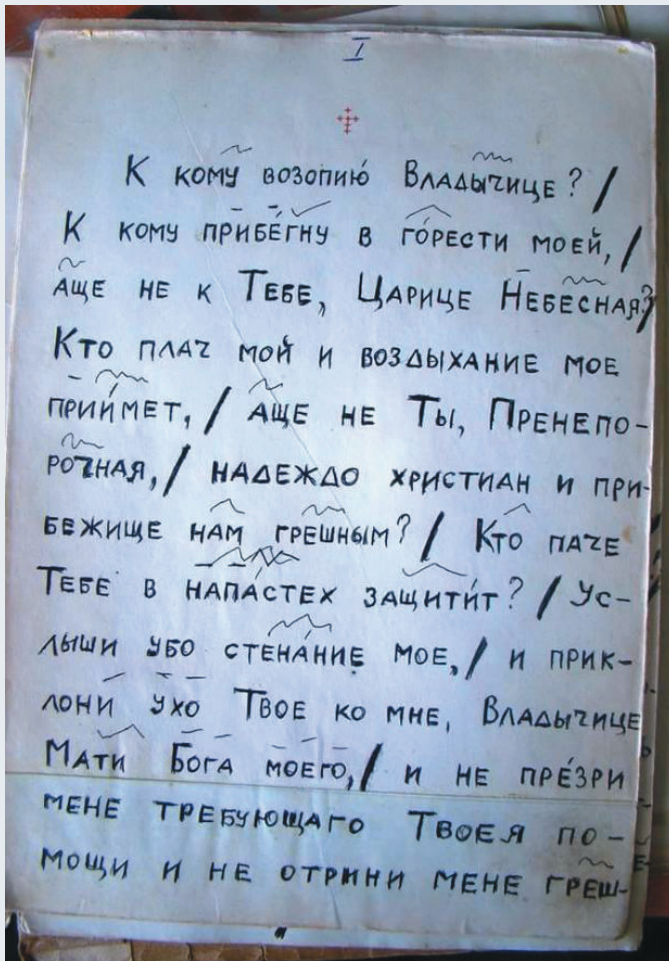 I
К кому возопию́ Владычице? /
К кому прибе́гну в го́рести моей, /
аще не к Тебе, Царице Небесная? /
Кто плач мой и воздыхание мое
прии́мет, / аще не Ты, Пренепо-
рочная, / надеждо христиан и при-
бежище нам грешным? / Кто паче
Тебе в напа́стех защити́т? / Ус-
лыши убо стена́ние мое, / и прик-
лони ухо Твое ко мне, Владычице
Мати Бога моего, / и не пре́зри
мене требующаго Твоея по-
мощи и не отрини мене греш-